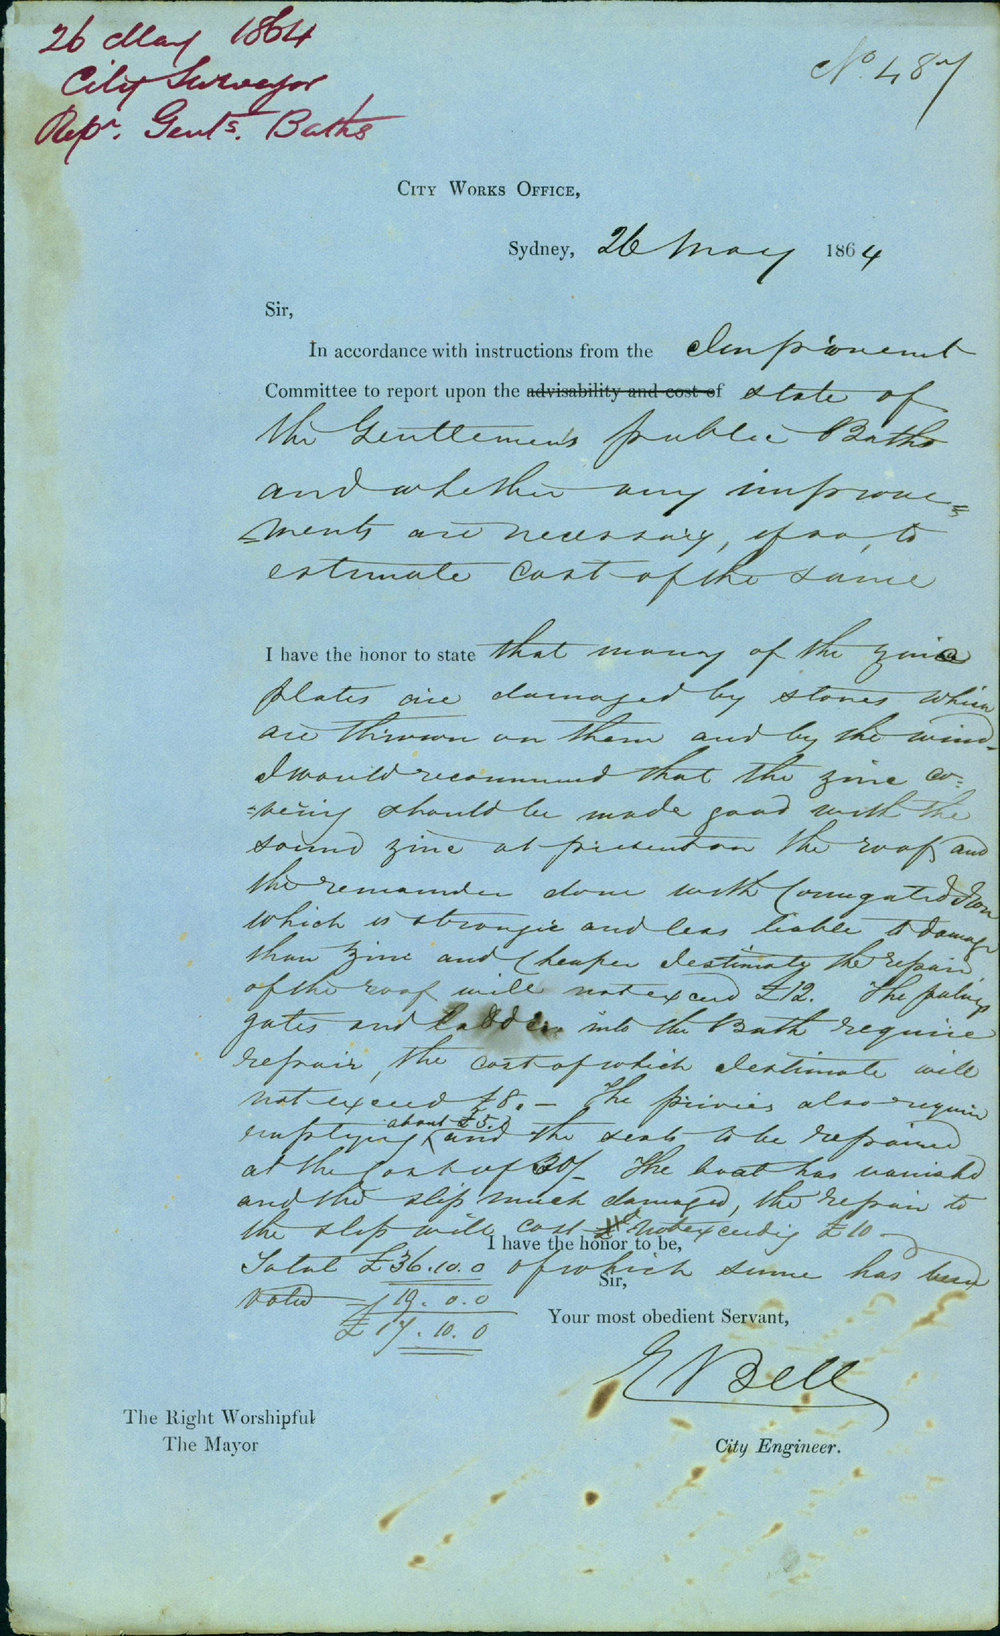 26 May 1864
City Surveyor
Repr. Gents. Baths
No. 487
City Works Office,
Sydney, 26 May 1864
Sir,
In accordance with instructions from the Improvement
Committee to report upon the advisability and cost of state of
the Gentlemen's public Baths
and whether any improve=
=ments are necessary, if so, to
estimate cost of the same
I have the honor to state that many of the zinc
plates are damaged by stones which
are thrown on them and by the wind
I would recommend that the zinc co=
=vering should be made good with the
sound zinc at present on the roof and
the remainder done with Corrugated Iron
which is stronger and less liable to damage
than zinc and Cheaper I estimate the repair
of the roof will not exceed £12. The palings
gates and ladder into the Bath require
repair, the cost of which I estimate will
not exceed £8. – The privies also require
emptying (about £5.) and the seats to be repaired
at the Cost of 30/– The boat has vanished
and the slip much damaged, the repair to
the slip will cost not exceeding £10 –
I have the honor to be,
Total £36.10.0 of which sume has been
Sir,
voted 19.0.0
£17.10.0
Your most obedient Servant,
E Bell
The Right Worshipful
The Mayor
City Engineer.